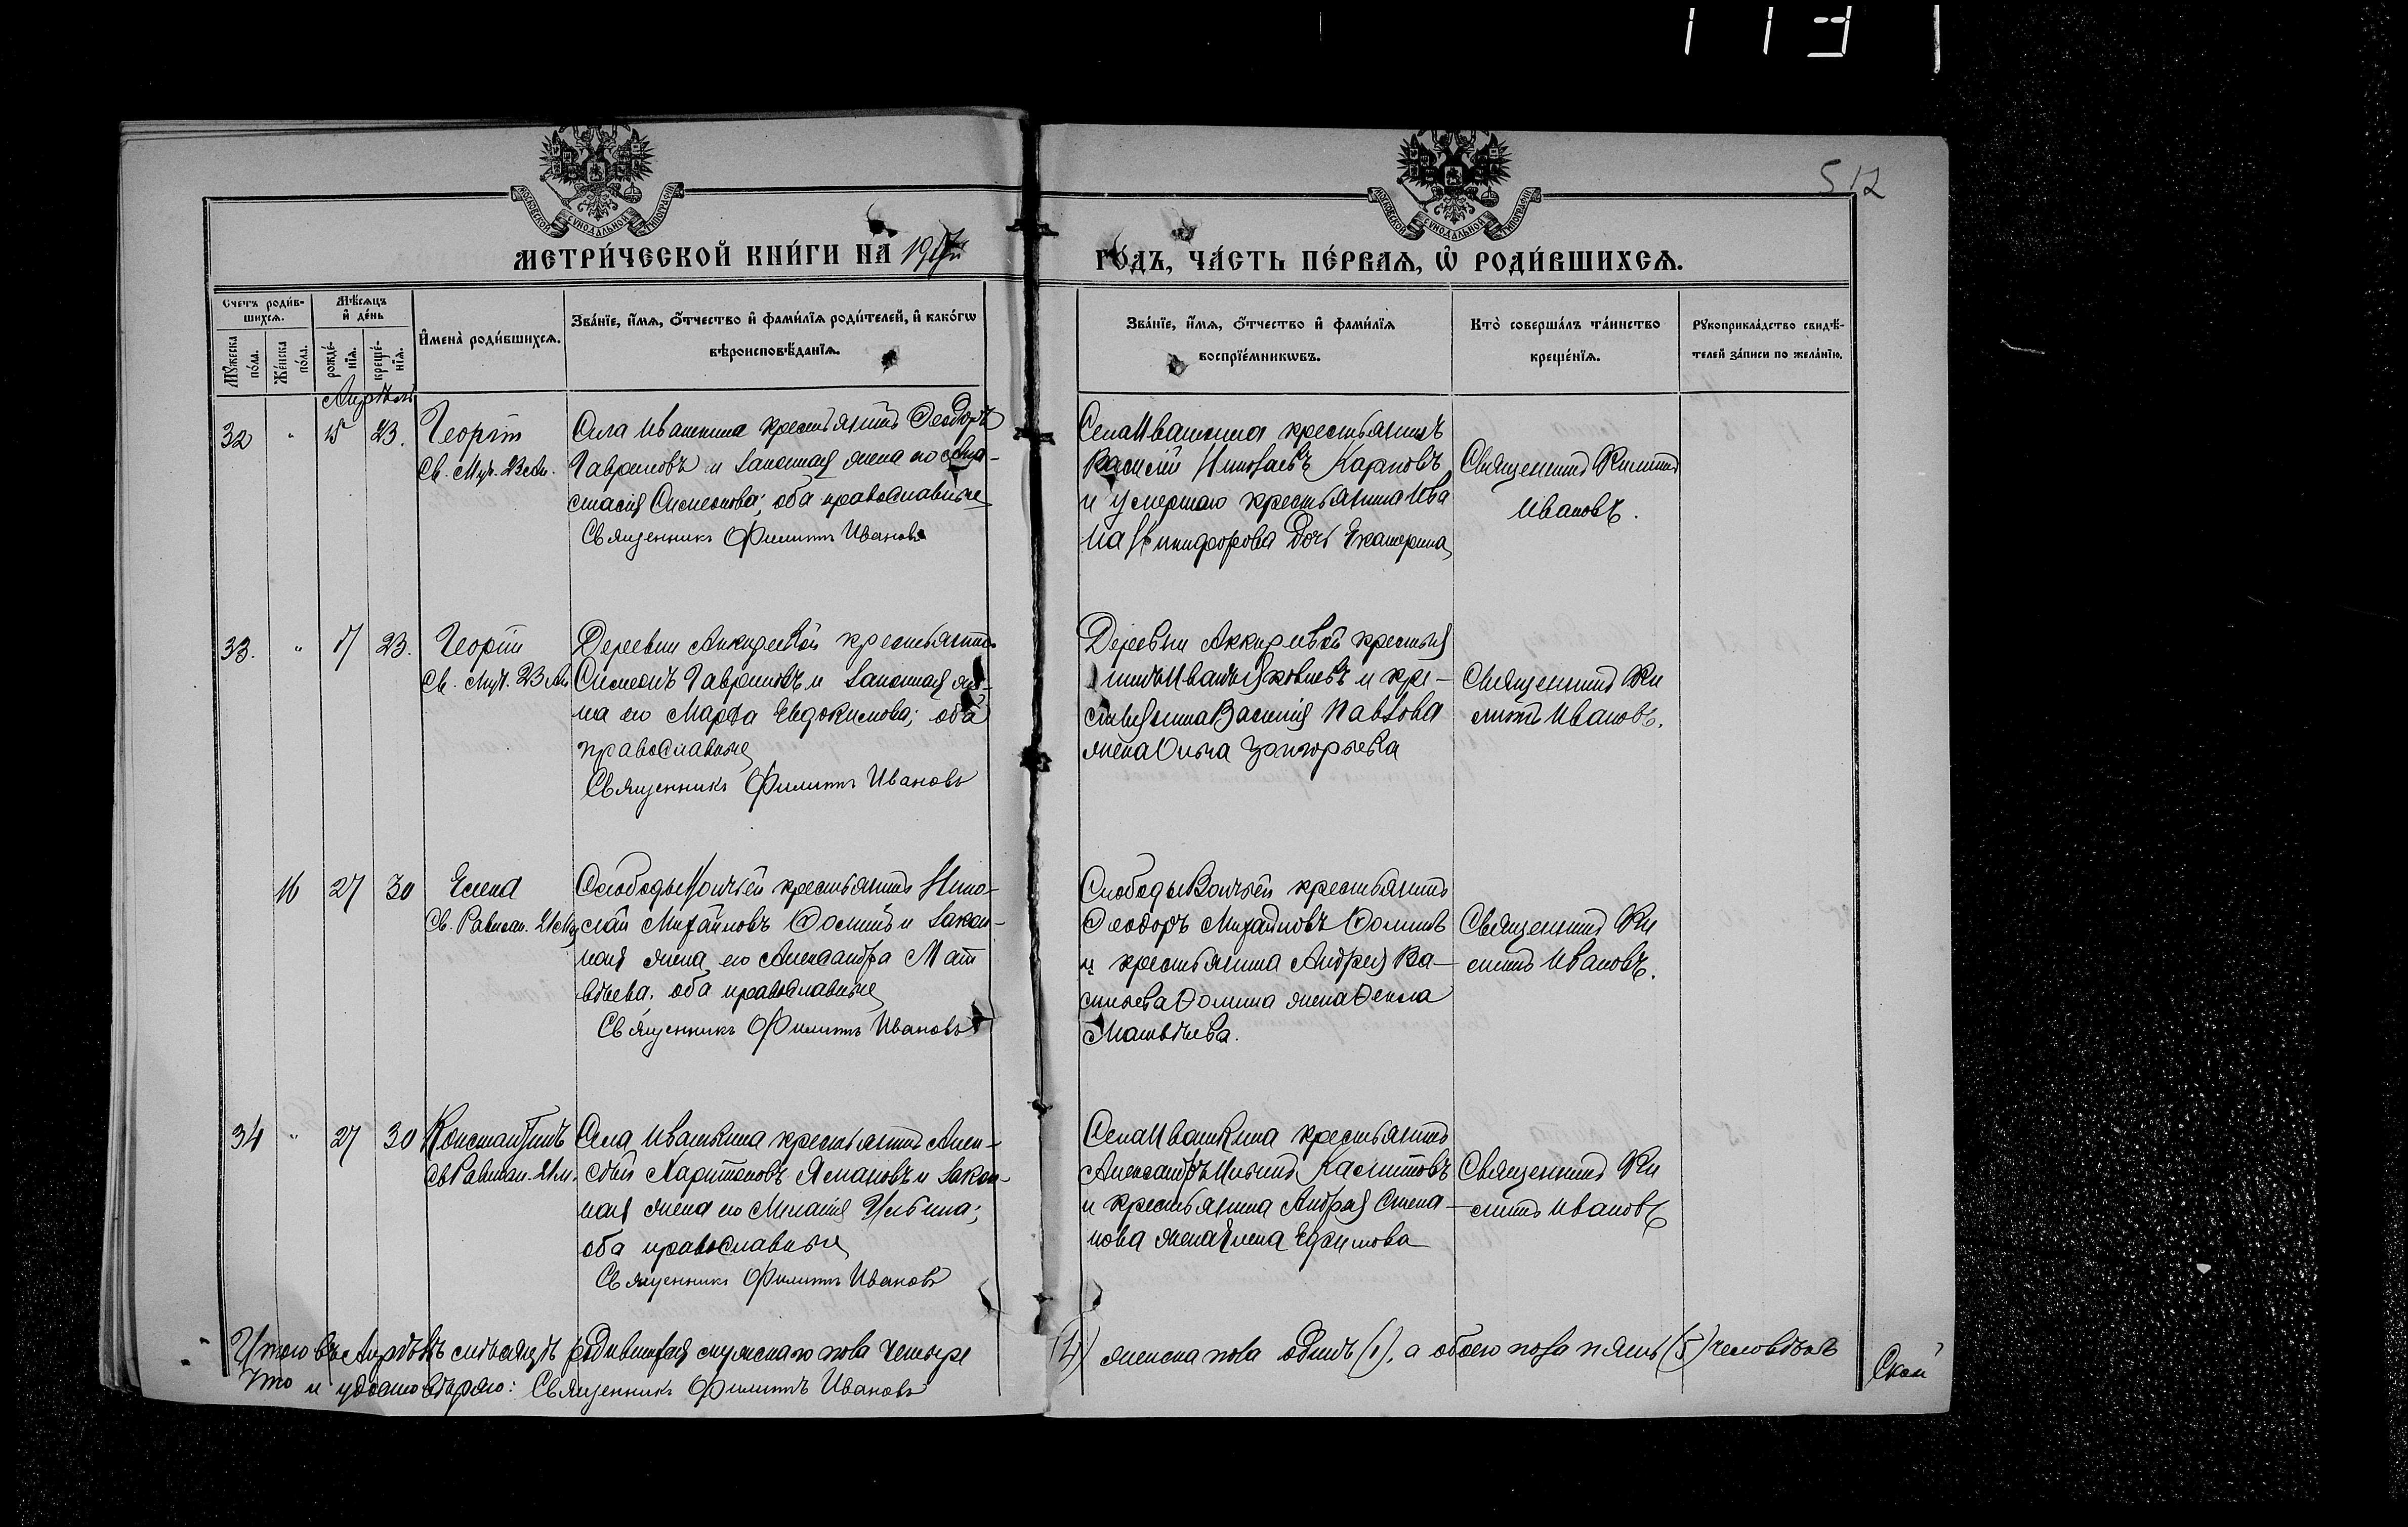 512
МОСКОВСКОЙ СѴНОДАЛЬНОЙ ТИПОГРАФІИ
МОСКОВСКОЙ СѴНОДАЛЬНОЙ ТИПОГРАФІИ
МЕТРИ́ЧЕСКОЙ КНИ́ГИ НА 1917й ГО́ДЪ, ЧА́СТЬ ПЕ́РВАЯ, Ѡ РОДИ́ВШИХСЯ.
Счетъ роди́в-
шихся.
Мѣсяцъ
и де́нь
Му́жеска по́ла.
Же́нска по́ла.
рожде́-
нія.
креще́-
нія.
Имена̀ роди́вшихся.
Зва́ніе, и́мя, о́тчество и фами́лія роди́телей, и како́гѡ
вѣроисповѣ́данія.
Зва́ніе, и́мя, о́тчество и фами́лія
воспріе́мникѡвъ.
Кто̀ соверша́лъ та́инство
креще́нія.
Рукоприкла́дство свидѣ́-
телей за́писи по жела́нію.
Апрѣль
32 " 15 23. Георгій
Св. Муч. 23 Ап.
Села Ивашкина крестьянинъ Ѳеодоръ
Гавриловъ и законная жена его Ана-
стасія Симеонова; оба православные
Священникъ Филиппъ Ивановъ
Села Ивашкина крестьянинъ
Василій Николаевъ Карповъ
и умершаго крестьянина Ива
на Никифорова дочь Екатерина
Священникъ Филиппъ
Ивановъ.
33. " 17 23. Георгій
Св. Муч. 23 Ап.
Деревни Аккиревой крестьянинъ
Симеонъ Гавриловъ и законная же-
на его Марѳа Евдокимова; оба
православные
Священникъ Филиппъ Ивановъ
Деревни Аккиревой крестья
нинъ Иванъ Яковлевъ и кре-
стьянина Василія Павлова
жена Ольга Григорьева
Священникъ Фи
липпъ Ивановъ.
16 27 30 Елена
Св. Равноап. 21 Мая
Слободы Волчьей крестьянинъ Нико-
лай Михайловъ Ѳоминъ и закон-
ная жена его Александра Мат
вѣева. оба православные
Священникъ Филиппъ Ивановъ
Слободы Волчьей крестьянинъ
Ѳеодоръ Михайловъ Ѳоминъ
и крестьянина Андрея Ва-
сильева Ѳомина жена Ѳекла
Матвѣева.
Священникъ Фи
липпъ Ивановъ.
34 " 27 30 Константинъ
Св Равноап. 21 м.
Села Ивашкина крестьянинъ Алек-
сѣй Харитоновъ Ясмановъ и закон-
ная жена его Меланія Ильина;
оба православные
Священникъ Филиппъ Ивановъ
Села Ивашкина крестьянинъ
Александръ Ильинъ
и крестьянина Андрея Степа-
нова жена Елена Ефимова
Священникъ Фи
липпъ Ивановъ
Итого въ Апрѣлѣ мѣсяцѣ родившихся мужскаго пола четыре (4) женска пола одинъ (1), а обоего пола пять (5) человѣкъ
Что и удостовѣряю: Священникъ Филиппъ Ивановъ